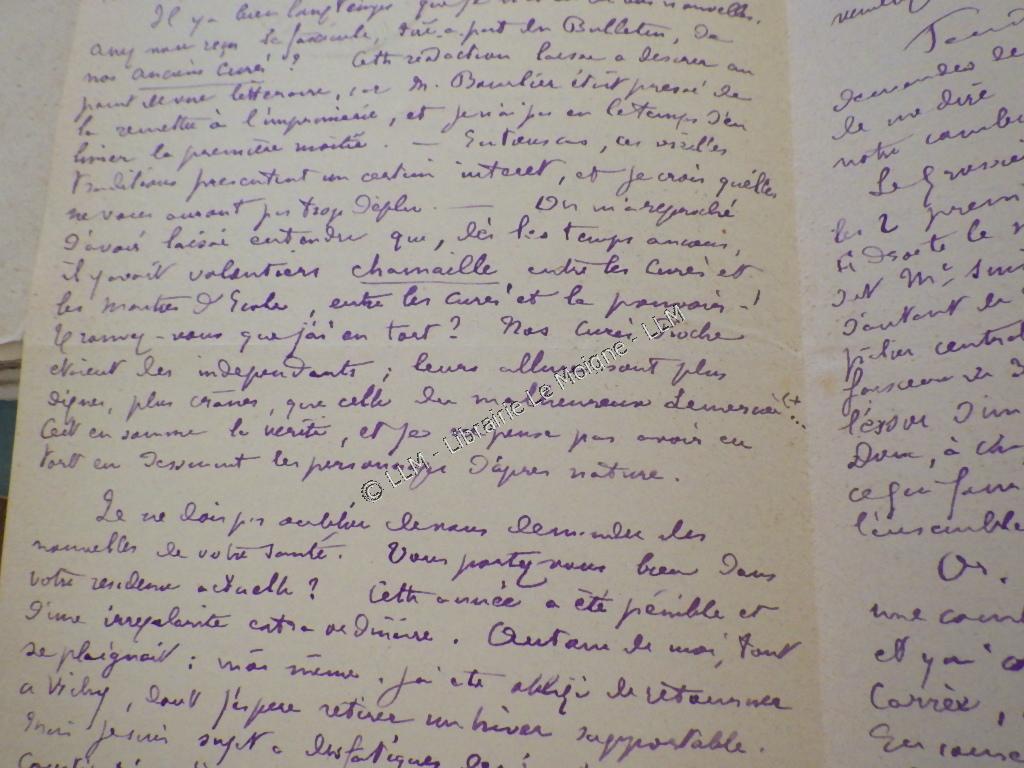 Il y a bien longtemps que je de vos nouvelles.
Avez-vous reçu le fascicule, tiré à part du Bulletin, de
nos anciens curés ? Cette rédaction laisse à désirer au
point de vue littéraire, car M. était pressé de
la remettre à l'imprimerie, et je n'ai pas eu le temps d'en
limer la première moitié. — En tous cas, ces vieilles
traditions présentent un certain intérêt, et je crois qu'elles
ne vous auront pas trop déplu. — On m'a reproché
d'avoir laissé entendre que, dès les temps anciens,
il y avait volontiers chamaille entre les Curés et
les maîtres d'École, entre les curés et le pouvoir !
Trouvez-vous que j'ai eu tort ? Nos Curés
étaient des indépendants ; leurs allures sont plus
dignes, plus crânes, que celle du malheureux
C'est en somme la vérité, et je ne pense pas avoir eu
tort en dessinant les personnages d'après nature.
Je ne dois pas oublier de vous demander des
nouvelles de votre santé. Vous portez-vous bien dans
votre résidence actuelle ? Cette année a été pénible et
d'une irrégularité extraordinaire. Autour de moi, tout
se plaignait ; moi même, j'ai été obligé de retourner
à Vichy, dont j'espère retirer un hiver supportable.
Mais je suis sujet à des fatigues
demandes de
de me dire
notre
Le
les 2
droite le
dit Mr.
d'autant
pilier central
faisceau de 3
l'essor d'un
Donc, à
ce qui
l'ensemble
Or,
une
et y ai
Carrée,
© LLM - Librairie Le Moigne - LLM